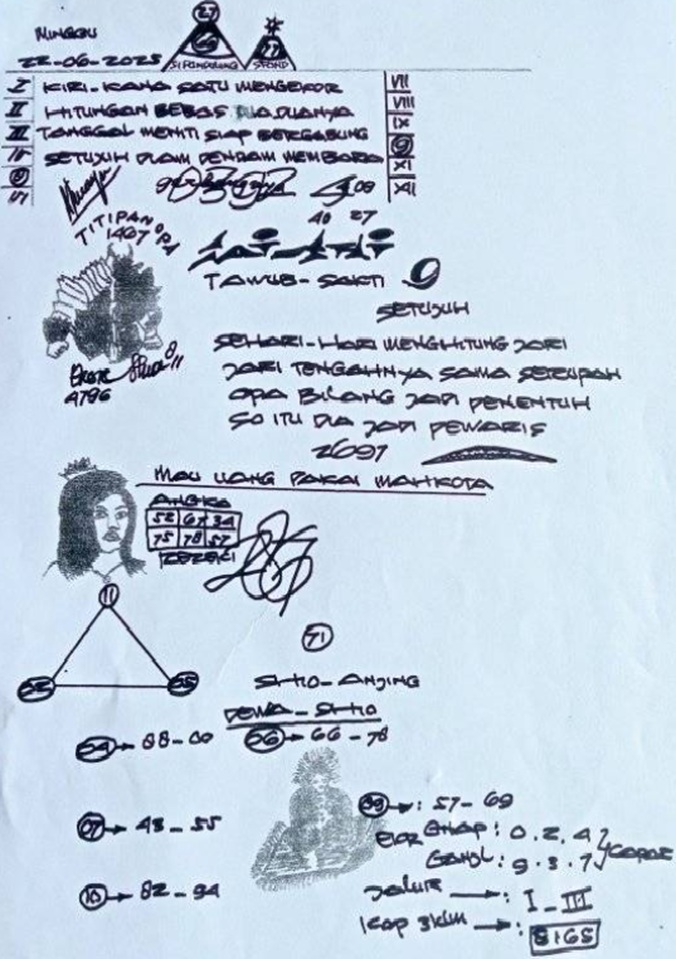 MINGGU
22-06-2025
27
SI PINDUNG
I KIRI-KANA SATU MENGEKOR VII
II HITUNGAN BEBAS DIADUANYA VIII
III TANGGAL MENITI SIAP BERGABUNG IX
IV SETUJUH DIAM DENDAM MEMBARA
XI
XII
40 27
TITIPAN OPA
1467
TAWUB-SAKTI 9
SETUJUH
SEHARI-HARI MENGHITUNG JARI
JARI TENGAHNYA SAMA SERUPAH
OPA BILANG JADI PENENTUH
SO ITU DIA JADI PEWARIS
2697
4796
MAU UANG PAKAI MAHKOTA
ANGKA
52 67 34
75 78 57
REZEKI
11
71
SHIO-ANJING
DEWA-SHIO
04 → 88-00 06 → 66-78
09 → : 57-69
07 → 43-55
EKOR GENAP : 0.2.4
GANJIL : 9.3.7
10 → 82-94
JALUR → : I-III
KAP 3KLIM → : 8165